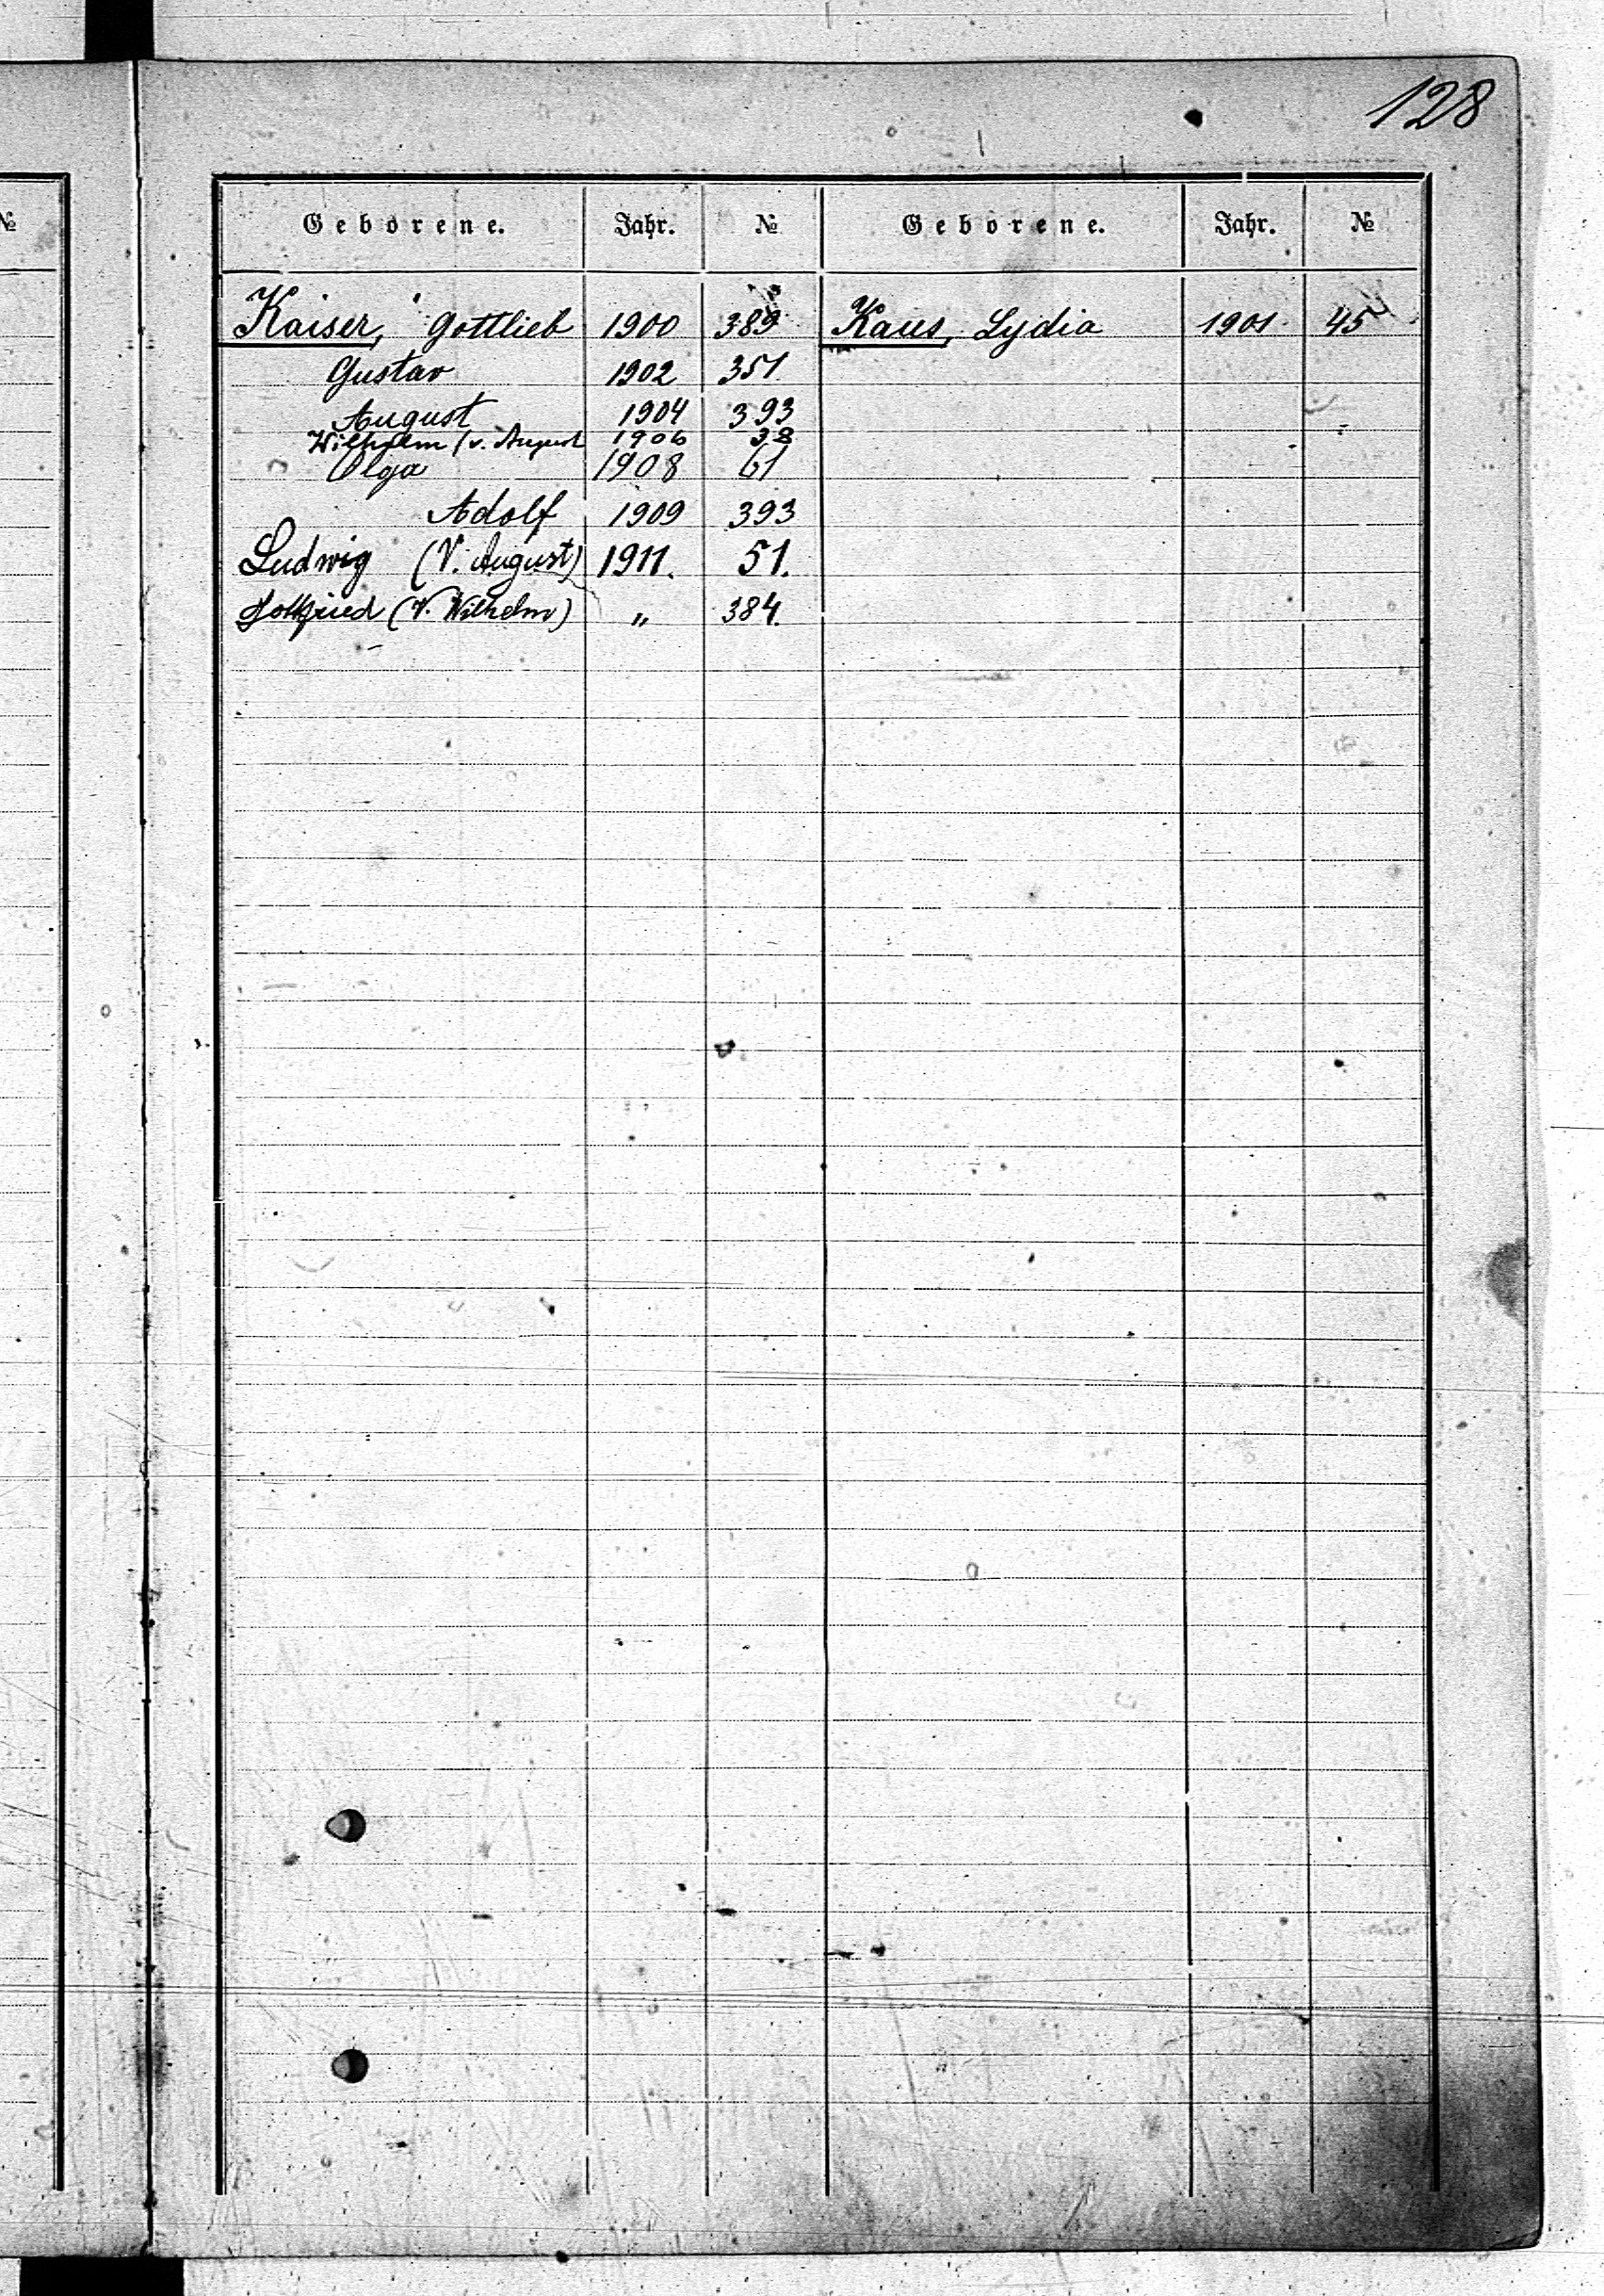 128
№
Geborene. Jahr. № Geborene. Jahr. №
Kaiser, Gottlieb 1900 389 Kaus, Lydia 1901 45
Gustav 1902 351
August 1904 393
Wilhelm (v. August 1906 38
Olga 1908 61
Adolf 1909 393
Ludwig (V. August) 1911. 51.
Gottfried (V. Wilhelm) " 384.